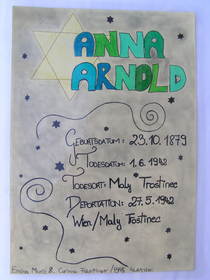 ANNA
ARNOLD
GEBURTSDATUM: 23.10.1879
TODESDATUM: 1.6.1942
TODESORT: Maly Trostinec
DEPORTATION: 27.5.1942
Wien/Maly Trostinec